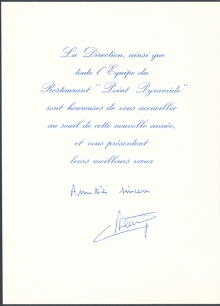 La Direction, ainsi que
toute l'Equipe du
Restaurant "Point-Pyramide"
sont heureuses de vous accueillir
au seuil de cette nouvelle année,
et vous présentent
leurs meilleurs vœux
Amitiés sincères